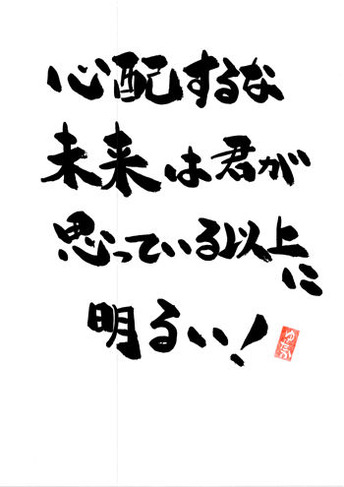 心配するな
未来は君が
思っている以上に
明るい！
ゆたか